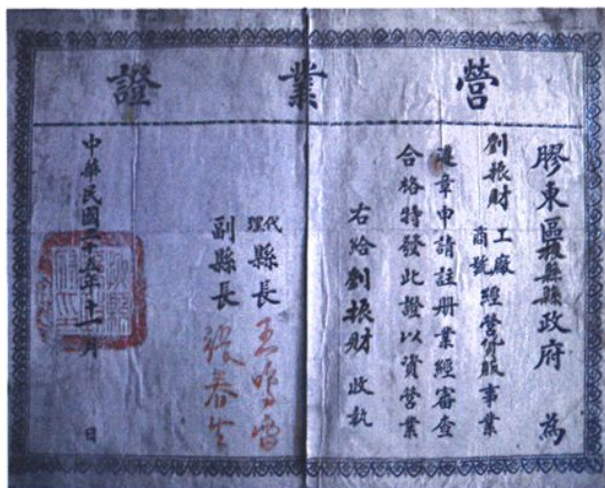 營業證
膠東區掖縣縣政府 為
劉振財 工廠商號 經營 服事業
遵章申請註册業經審查
合格特發此證以資營業
右給劉振財 收執
代理縣長 王鳴
副縣長 張春
中華民國三十五年十一月 日